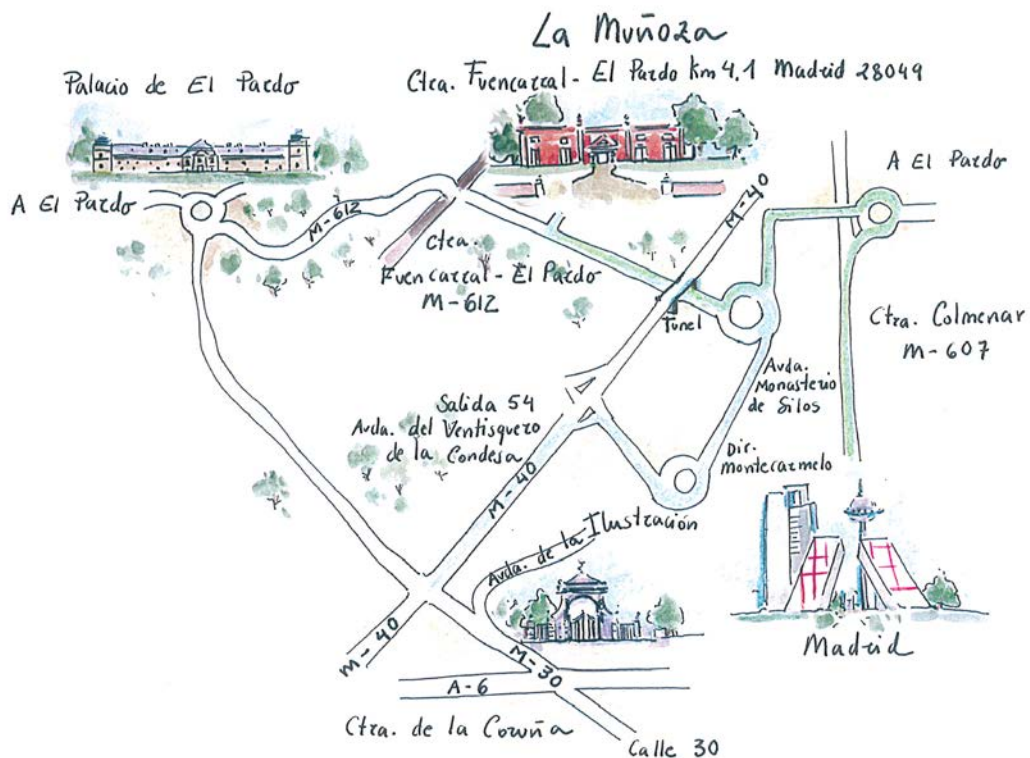 La Muñoza
Ctra. Fuencarral - El Pardo Km 4,1 Madrid 28049
Palacio de El Pardo
A El Pardo
M-612
Ctra.
Fuencarral - El Pardo
M-612
M-40
A El Pardo
Tunel
Ctra. Colmenar
M-607
Avda.
Monasterio
de Silos
Salida 54
Avda. del Ventisquero
de la Condesa
M-40
Dir.
Montecarmelo
Avda. de la Ilustración
M-40
M-30
A-6
Ctra. de la Coruña
Calle 30
Madrid